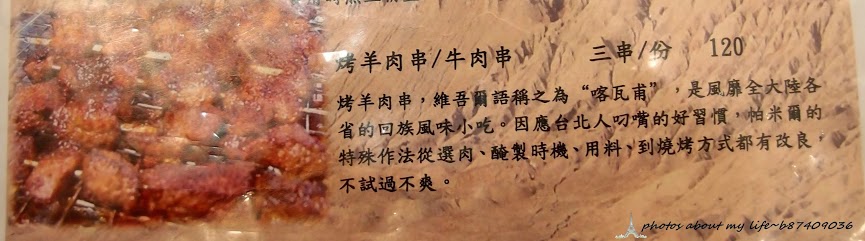 烤羊肉串/牛肉串 三串/份 120
烤羊肉串，維吾爾語稱之為“喀瓦甫”，是風靡全大陸各
省的回族風味小吃。因應台北人叼嘴的好習慣，帕米爾的
特殊作法從選肉、醃製時機、用料、到燒烤方式都有改良，
不試過不爽。
photos about my life~b87409036